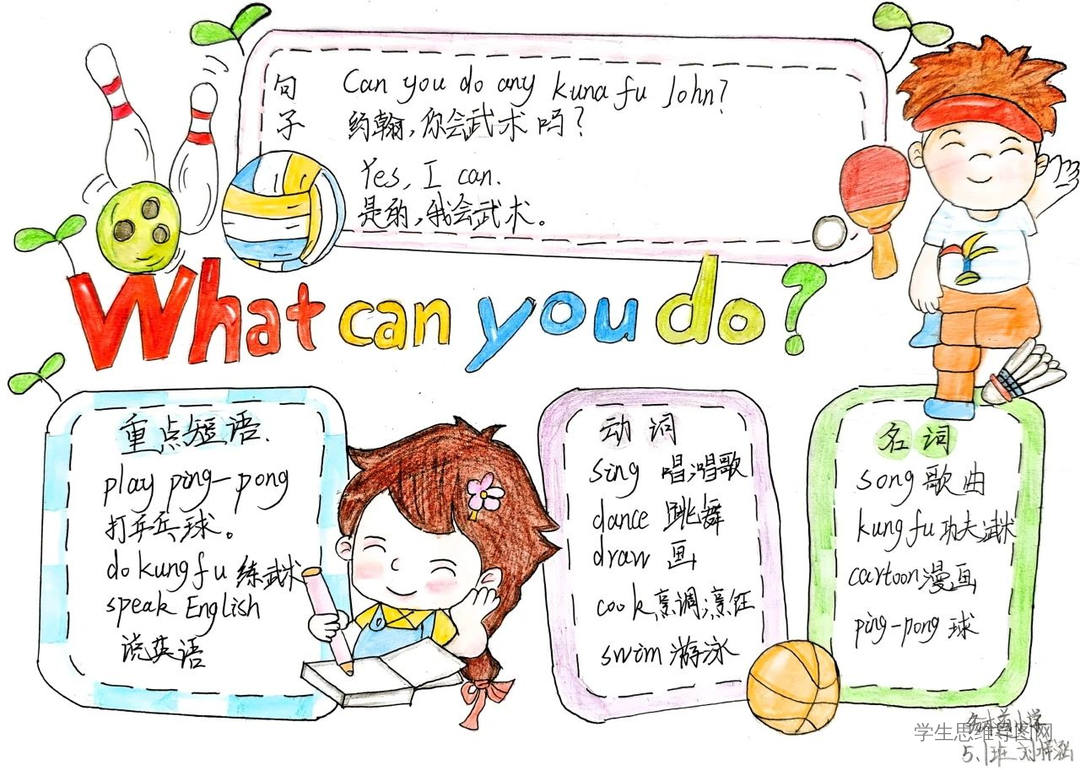 句子
Can you do any kuna fu John?
约翰,你会武术吗?
Yes, I can.
是的,我会武术。
What can you do?
重点短语.
play ping-pong
打乒乓球。
do kung fu 练武术
speak English
说英语
动词
sing 唱,唱歌
dance 跳舞
draw 画
cook 烹调,烹饪
swim 游泳
名词
song 歌曲
kung fu 功夫武术
cartoon 漫画
ping-pong 球
学生思维导图网
5.1班